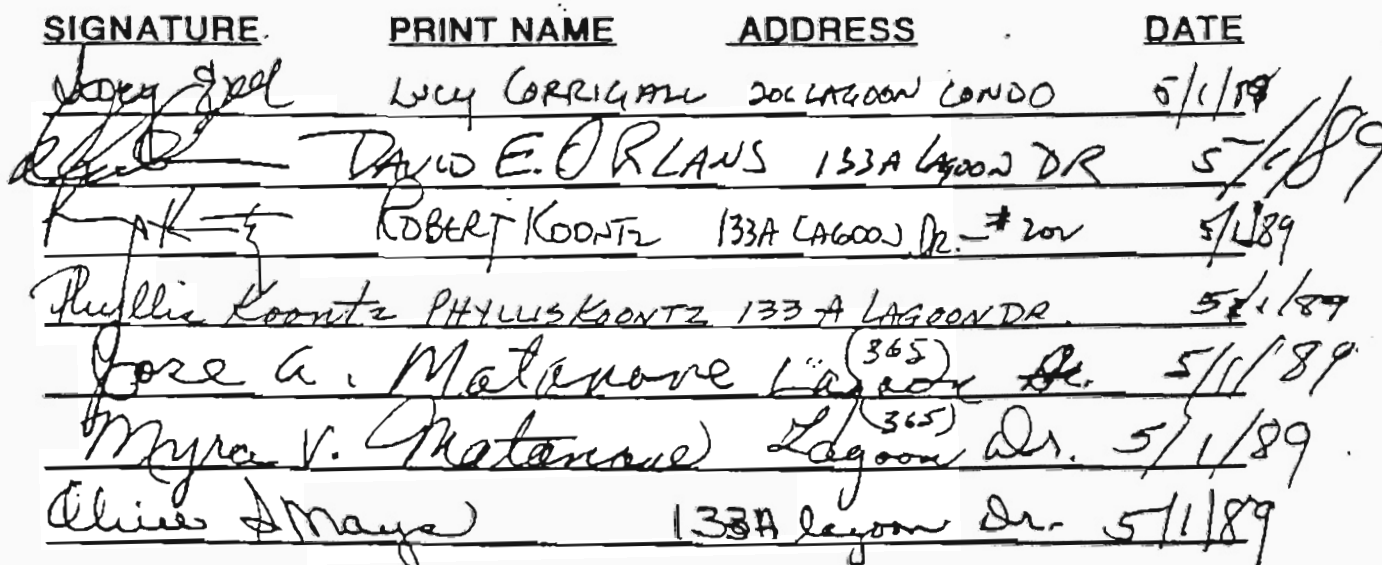 SIGNATURE. PRINT NAME ADDRESS DATE
LUCY CORRIGALL LAGOON CONDO 5/1/89
DAVID E. ORLANS 133A LAGOON DR 5/1/89
ROBERT KOONTZ 133A LAGOON DR. #202 5/1/89
Phyllis Koontz PHYLLIS KOONTZ 133 A LAGOON DR. 5/1/89
Jose a. Matanane (365) Lagoon Dr. 5/1/89
Myra V. Matanane (365) Lagoon Dr. 5/1/89
133A lagoon Dr. 5/1/89